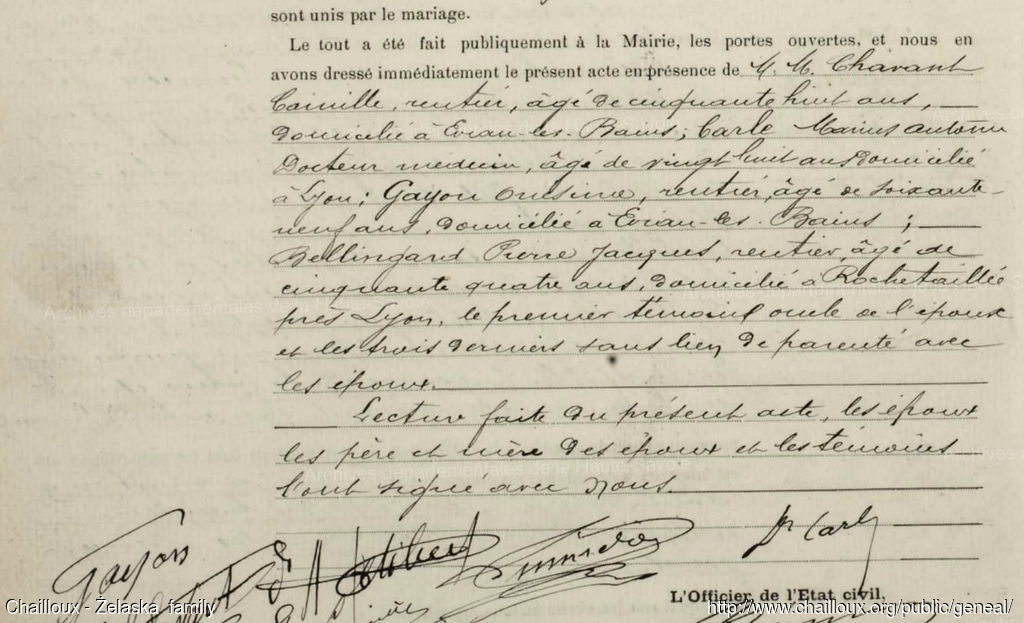 sont unis par le mariage.
Le tout a été fait publiquement à la Mairie, les portes ouvertes, et nous en
avons dressé immédiatement le présent acte en présence de M. M. Chavant
Camille, rentier, âgé de cinquante huit ans,
domicilié à Evian-les-Bains; Carle Marius
Docteur médecin, âgé de vingt huit ans domicilié
à Lyon; Gayon Onésime, rentier, âgé de soixante-
neuf ans, domicilié à Evian-les-Bains;
Bellingard Pierre Jacques, rentier, âgé de
cinquante quatre ans, domicilié à Rochetaillée
près Lyon, le premier témoin oncle de l'époux
et les trois derniers sans lien de parenté avec
les époux.
Lecture faite du présent acte, les époux
les père et mère des époux et les témoins
l'ont signé avec Nous.
Gayon
Dr Carle
L'Officier de l'Etat civil,
Archives départementales de la Haute-Savoie
Chailloux - Żelaska family
http://www.chailloux.org/public/geneal/